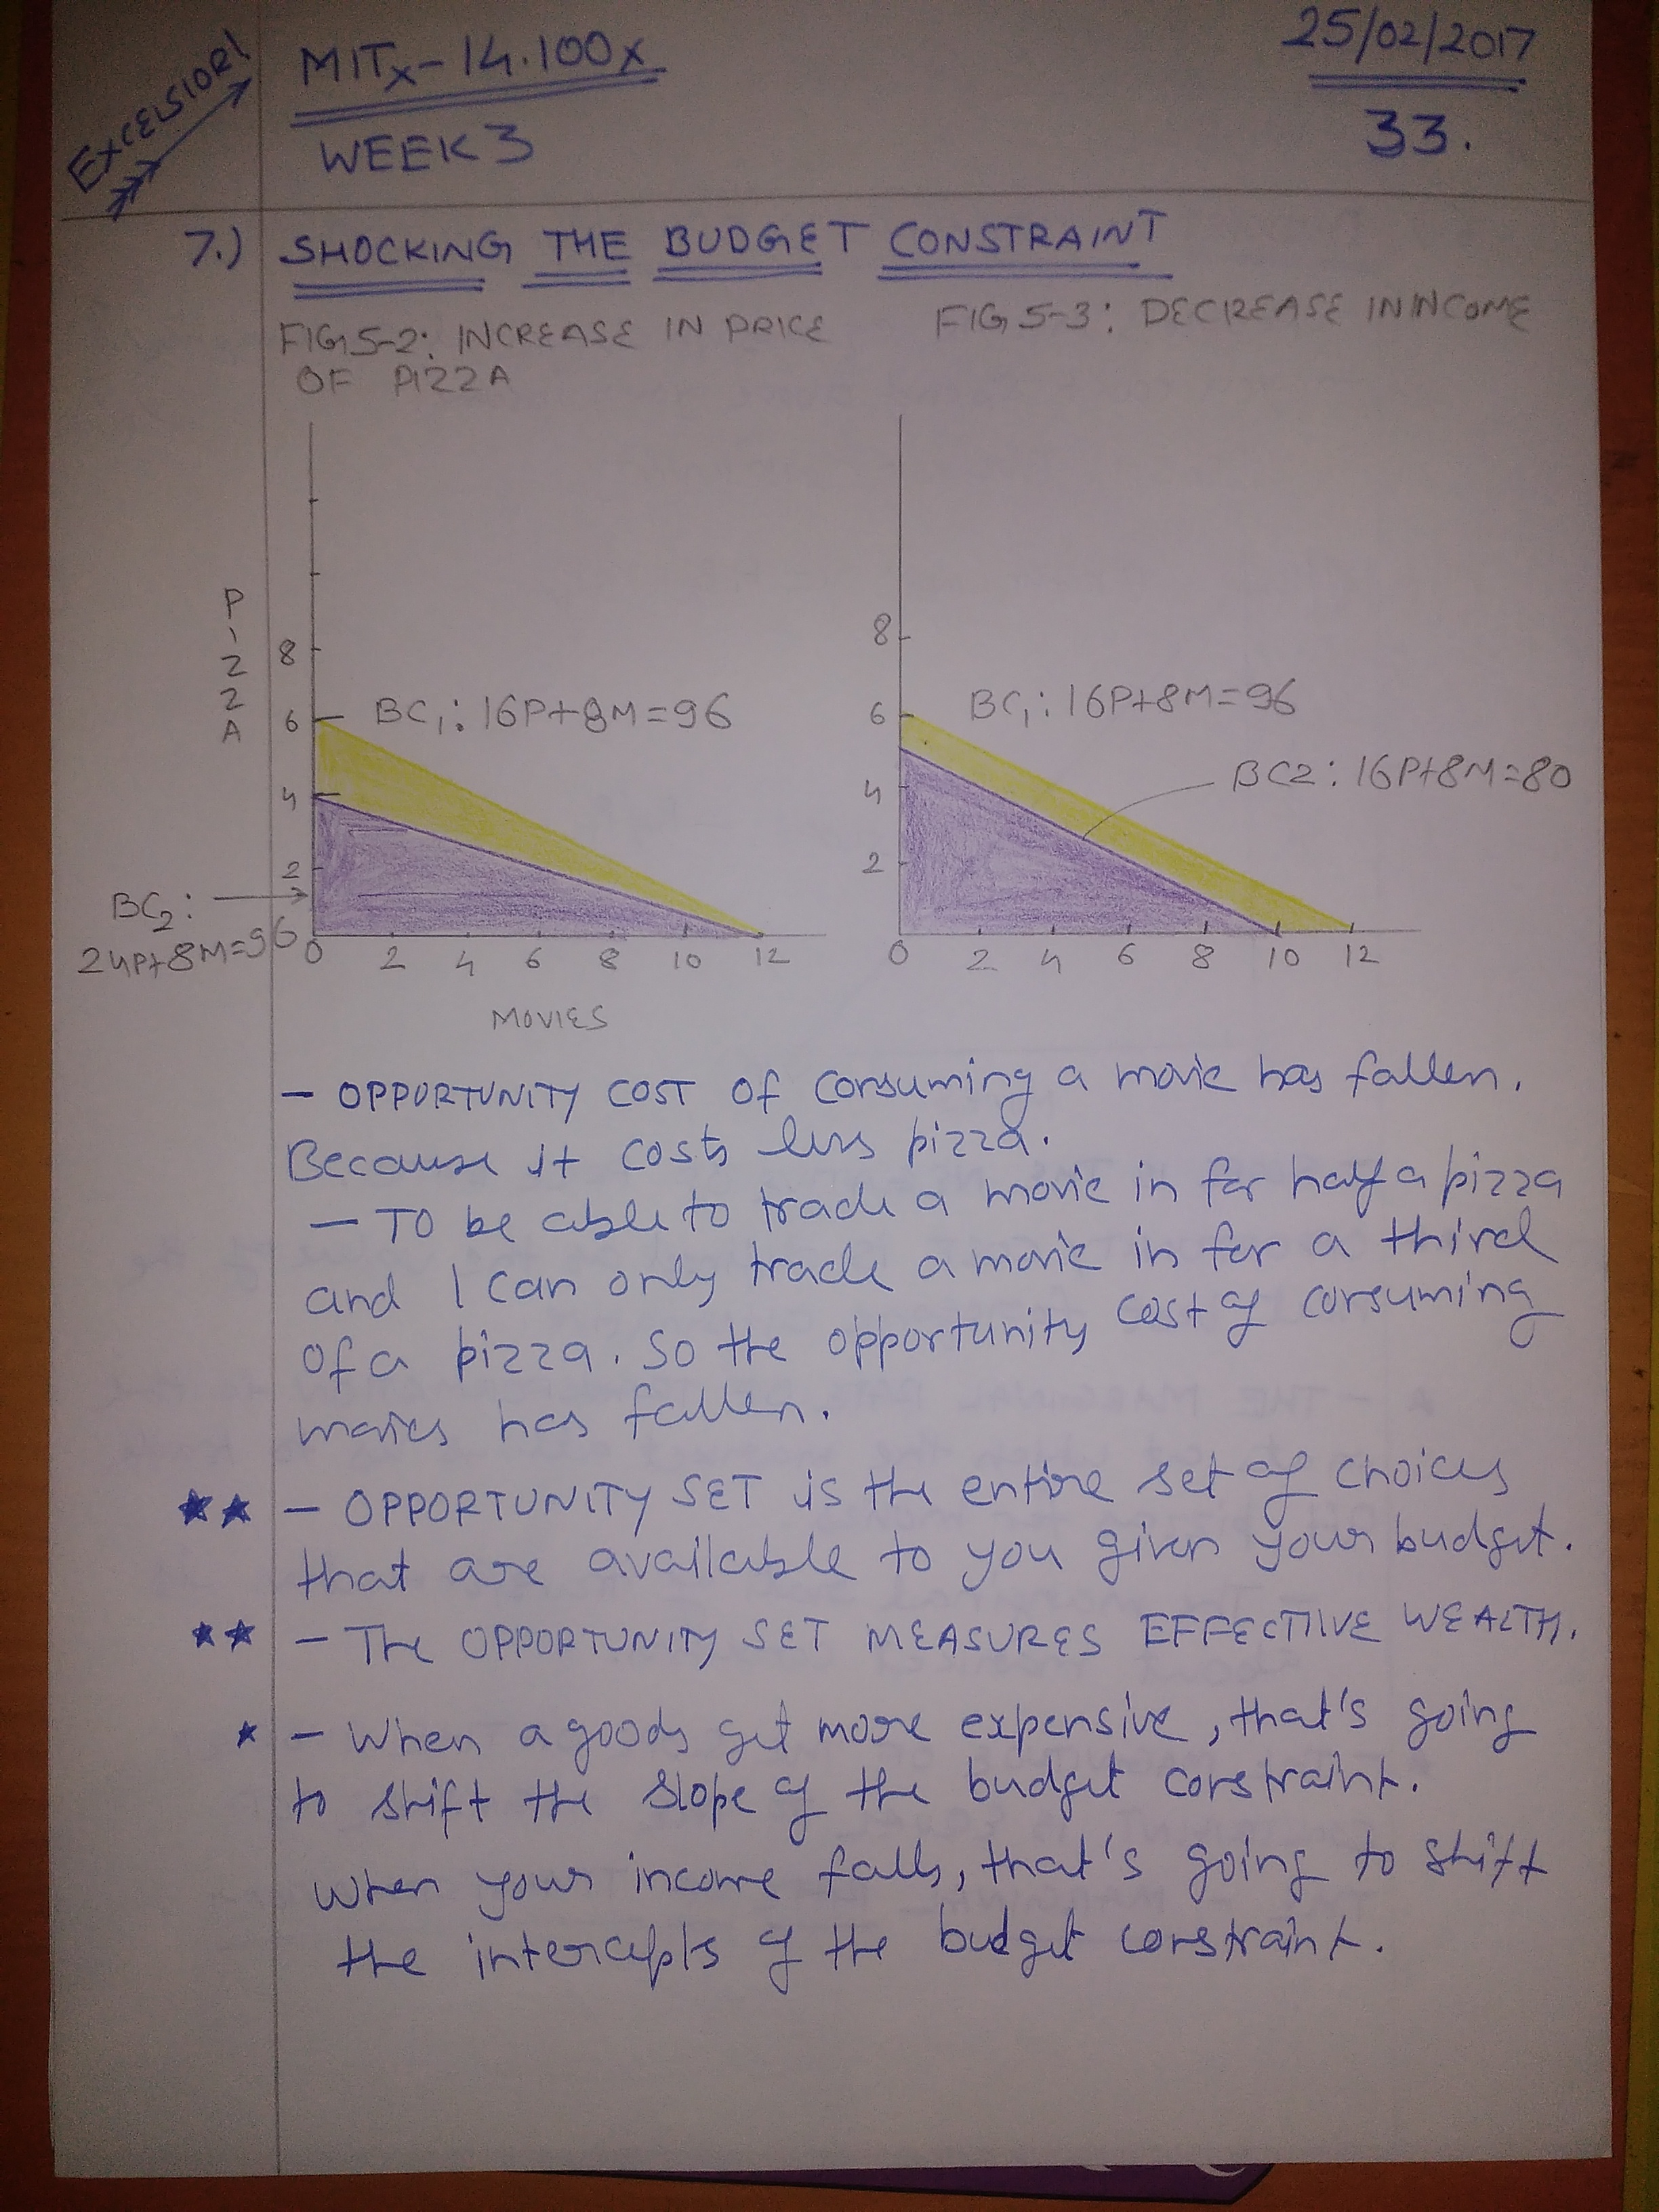 EXCELSIOR!
MITx-14.100x
25/02/2017
WEEK 3
33.
7.) SHOCKING THE BUDGET CONSTRAINT
FIG 5-2: INCREASE IN PRICE
OF PIZZA
FIG 5-3: DECREASE IN INCOME
PIZZA
8
6
4
2
BC1: 16P+8M=96
BC2:
24P+8M=96
0 2 4 6 8 10 12
MOVIES
8
6
4
2
BC1: 16P+8M=96
BC2: 16P+8M=80
0 2 4 6 8 10 12
- OPPORTUNITY COST OF consuming a movie has fallen.
Because it costs less pizza.
- TO be able to trade a movie in for half a pizza
and I can only trade a movie in for a third
of a pizza. So the opportunity cost of consuming
movies has fallen.
★★ - OPPORTUNITY SET is the entire set of choices
that are available to you given your budget.
★★ - The OPPORTUNITY SET MEASURES EFFECTIVE WEALTH.
★ - When a goods get more expensive, that's going
to shift the slope of the budget constraint.
When your income falls, that's going to shift
the intercepts of the budget constraint.